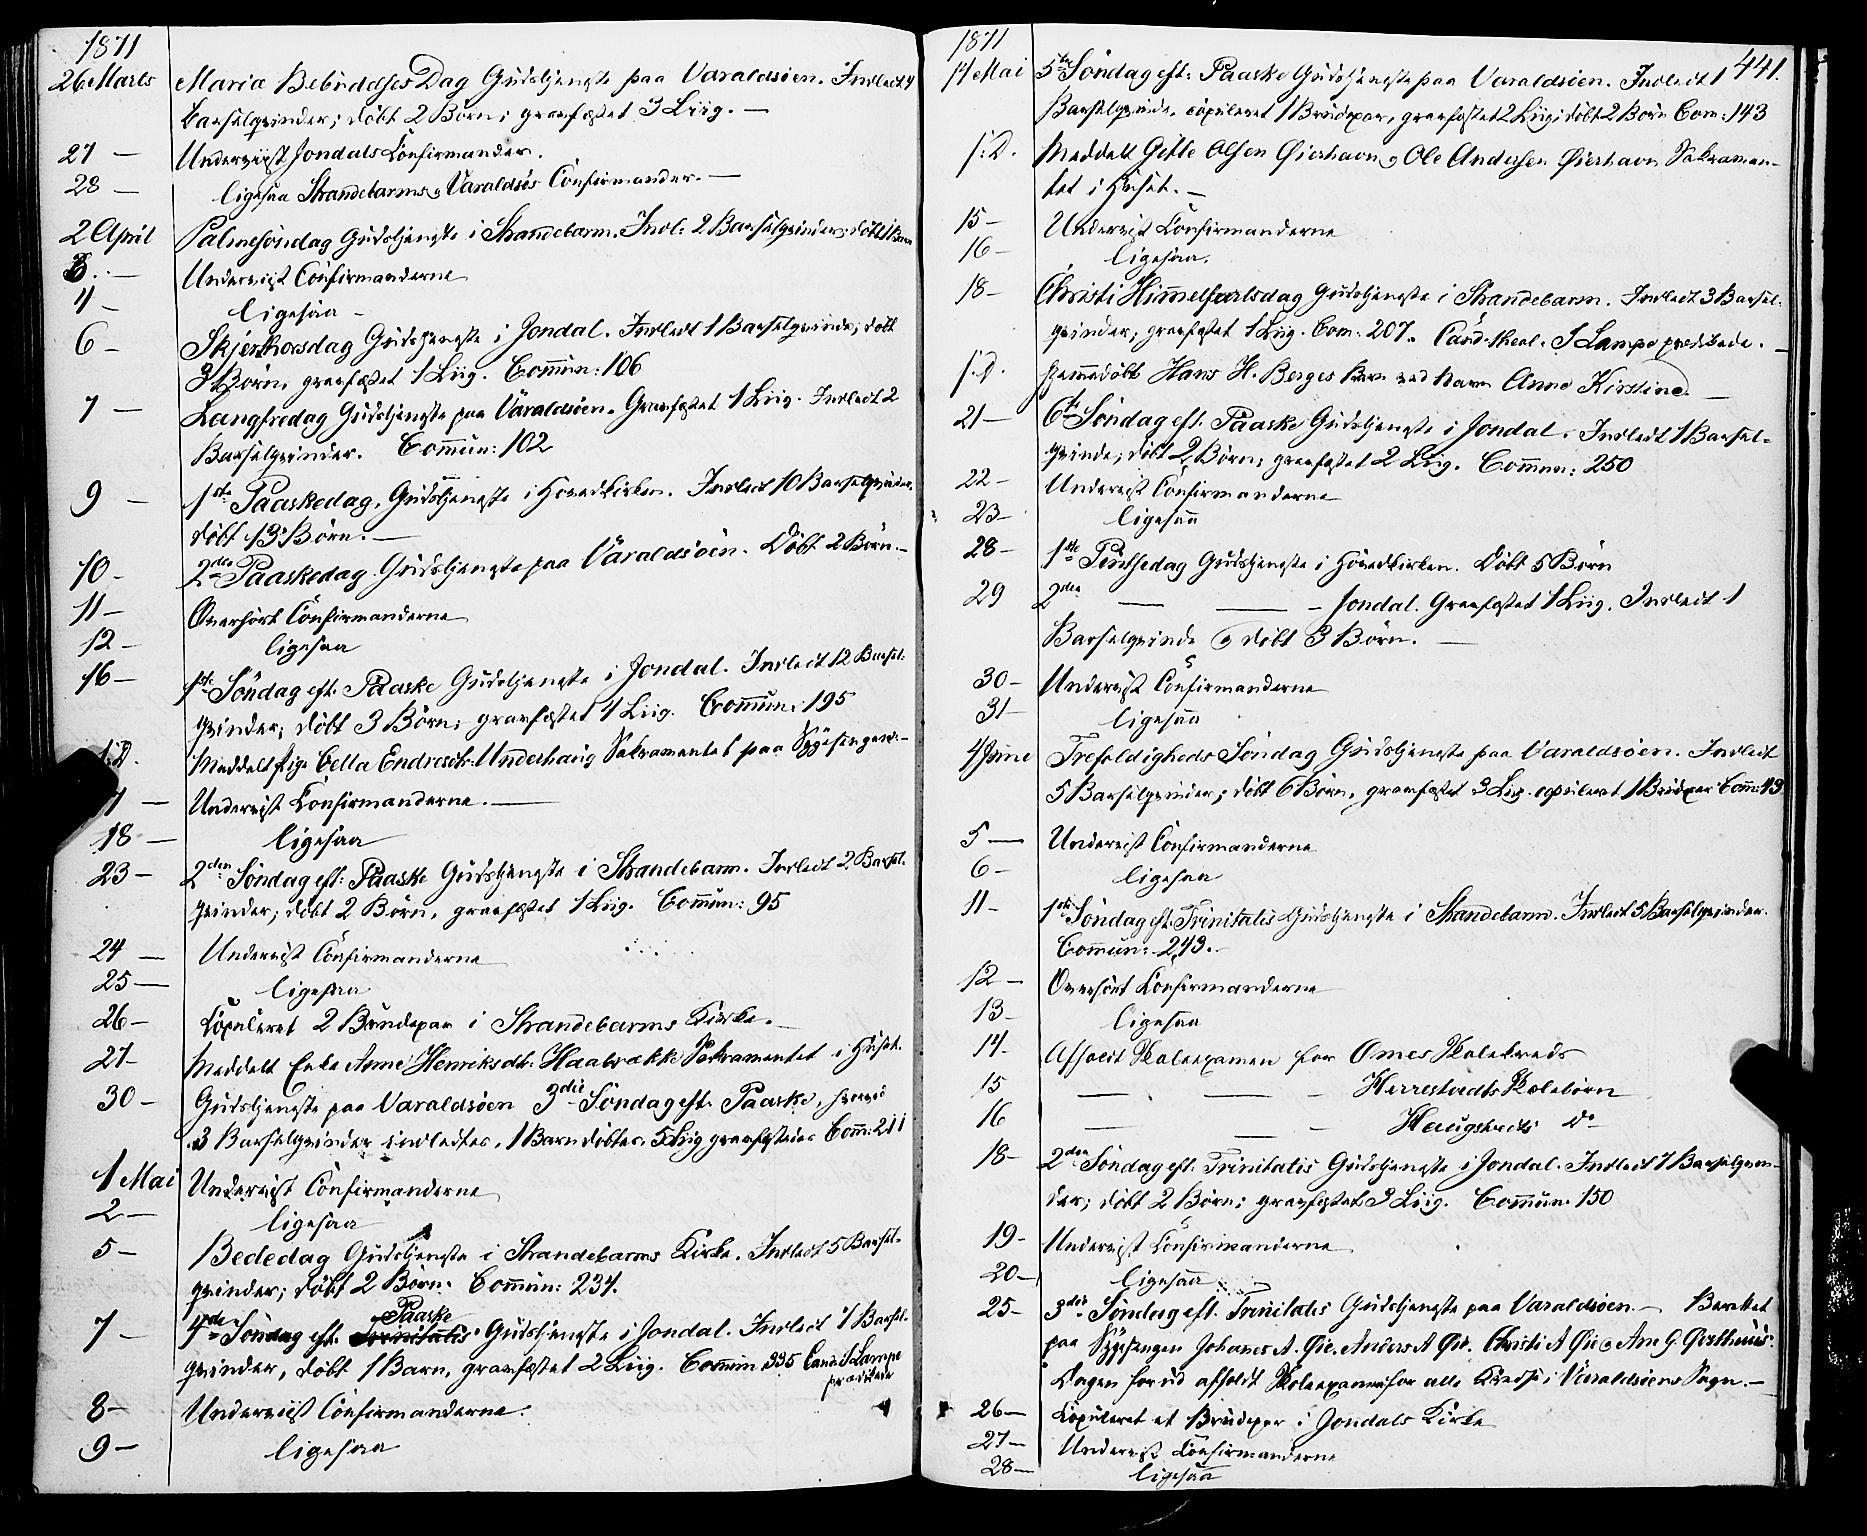 1871
26 Marts Maria Bebudelses Dag Gudstjeneste paa Varaldsöen. Indledt 4
Barselqvinder; döbt 2 Börn; gravfæstet 3 Liig. —
27 — Underviist Jondals Confirmander.
28 — ligesaa Strandebarms og Varaldsös Confirmander. —
2 April Palmesöndag Gudstjeneste i Strandebarm. Indl: 2 Barselqvinder; döbt 1 Barn
3 — Underviist Confirmanderne
4 — ligesaa —
6 — Skjerthorsdag Gudstjeneste i Jondal. Indledt 1 Barselqvinde; döbt
3 Börn, gravfæstet 1 Liig. Com̄un: 106
7 — Langfredag Gudstjeneste paa Varaldsöen. Gravfæstet 1 Liig. Indledt 2
Barselqvinder. Com̄un: 102
9 — 1ste Paaskedag, Gudstjeneste i Hovedkirken. Indledt 10 Barselqvinder.
döbt 13 Börn. —
10 — 2den Paaskedag Gudstjeneste paa Varaldsöen. Döbt 2 Börn. —
11 — Overhört Confirmanderne
12 — ligesaa
16 — 1ste Söndag eft. Paaske Gudstjeneste i Jondal. Indledt 12 Barsel-
qvinder; döbt 3 Börn; gravfæstet 4 Liig. Com̄un: 195
s. D. Meddelt Pige Cella Endresdtr: Underhaug Sakramentet paa Sygesengen. —
17 — Underviist Confirmanderne. —
18 — ligesaa
23 — 2den Söndag eft: Paaske Gudstjeneste i Strandebarm. Indledt 2 Barsel-
qvinder; döbt 2 Börn, gravfæstet 1 Liig. Com̄un: 95
24 — Underviist Confirmanderne
25 — ligesaa
26 — Copuleret 2 Brudepar i Strandebarms Kirke. —
27 — Meddelt Enke Anne Henriksdtr: Haabrække Sakramentet i Huset.
30 — Gudstjeneste paa Varaldsöen 3die Söndag eft. Paaske, hvorved
3 Barselqvinder indledtes, 1 Barn döbtes, 5 Liig gravfæstedes Com̄: 211
1 Mai Underviist Confirmanderne
2 — ligesaa
5 — Bededag Gudstjeneste i Strandebarms Kirke. Indledt 5 Barsel-
qvinder; döbt 2 Börn. Com̄un: 234.
Paaske
7 — 4de Söndag eft. Trinitatis Gudstjeneste i Jondal. Indledt 7 Barsel-
qvinder, döbt 1 Barn, gravfæstet 2 Liig. Com̄un 335 Cand. S Lampe
prædikede
8 — Underviist Confirmanderne.
9 — ligesaa
1871
441.
14 Mai 5te Söndag eft: Paaske Gudstjeneste paa Varaldsöen. Indledt 1
Barselqvinde, copuleret 1 Brudepar, gravfæstet 2 Liig; döbt 2 Börn Com: 143
s. D. Meddelt Gitle Olsen Öierhavn og Ole Andersen Öierhavn Sakramen-
tet i Huset. —
15 — Underviist Confirmanderne
16 — ligesaa.
18 — Christi Himmelfartsdag Gudstjeneste i Strandebarm. Indledt 3 Barsel-
qvinder; gravfæstet 1 Liig. Com: 207. Cand. theol. S Lampe prædikede. —
s. D. Hjemmedöbt Hans H. Berges Barn ved Navn Anne Kirstine. —
21 — 6te Söndag eft. Paaske Gudstjeneste i Jondal. Indledt 1 Barsel-
qvinde; döbt 2 Börn; gravfæstet 2 Liig. Com̄un: 250
22 — Underviist Confirmanderne
23 — ligesaa
28 — 1ste Pintsedag Gudstjeneste i Hovedkirken. Döbt 5 Börn
29 2den — — — Jondal. Gravfæstet 1 Liig. Indledt 1
Barselqvinde og döbt 3 Börn. —
30 — Underviist Confirmanderne
31 — ligesaa
4 Juni Trefoldigheds Söndag Gudstjeneste paa Varaldsöen. Indledt
5 Barselqvinder; döbt 6 Börn, gravfæstet 3 Liig. copuleret 1 Brudepar
5 — Underviist Confirmanderne
6 — ligesaa
11 — 1ste Söndag eft. Trinitatis Gudstjeneste i Strandebarm. Indledt 5 Barselqvinder.
Com̄un: 243. —
12 — Overhört Confirmanderne
13 — ligesaa
14 — Afholdt Skoleexamen for Omes Skolekreds
15 — — — Herrestadts Skolebörn
16 — — — Do
18 — 2den Söndag eft. Trinitatis Gudstjeneste i Jondal. Indledt 7 Barselqvin-
der; döbt 2 Börn; gravfæstet 3 Liig. Com̄un: 150
19 — Underviist Confirmanderne
20 — ligesaa
25 — 3die Söndag eft. Trinitatis Gudstjeneste paa Varaldsöen. — Berettet
paa Sygesengen Johannes A. Öie, Anders A Öie, Christi A Öie og Ane G.
Dagen forud afholdt Skoleexamen for alle Kredse i Varaldsöens Sogn. —
26 — Copuleret et Brudepar i Jondals Kirke
27 — Underviist Confirmanderne
28 — ligesaa